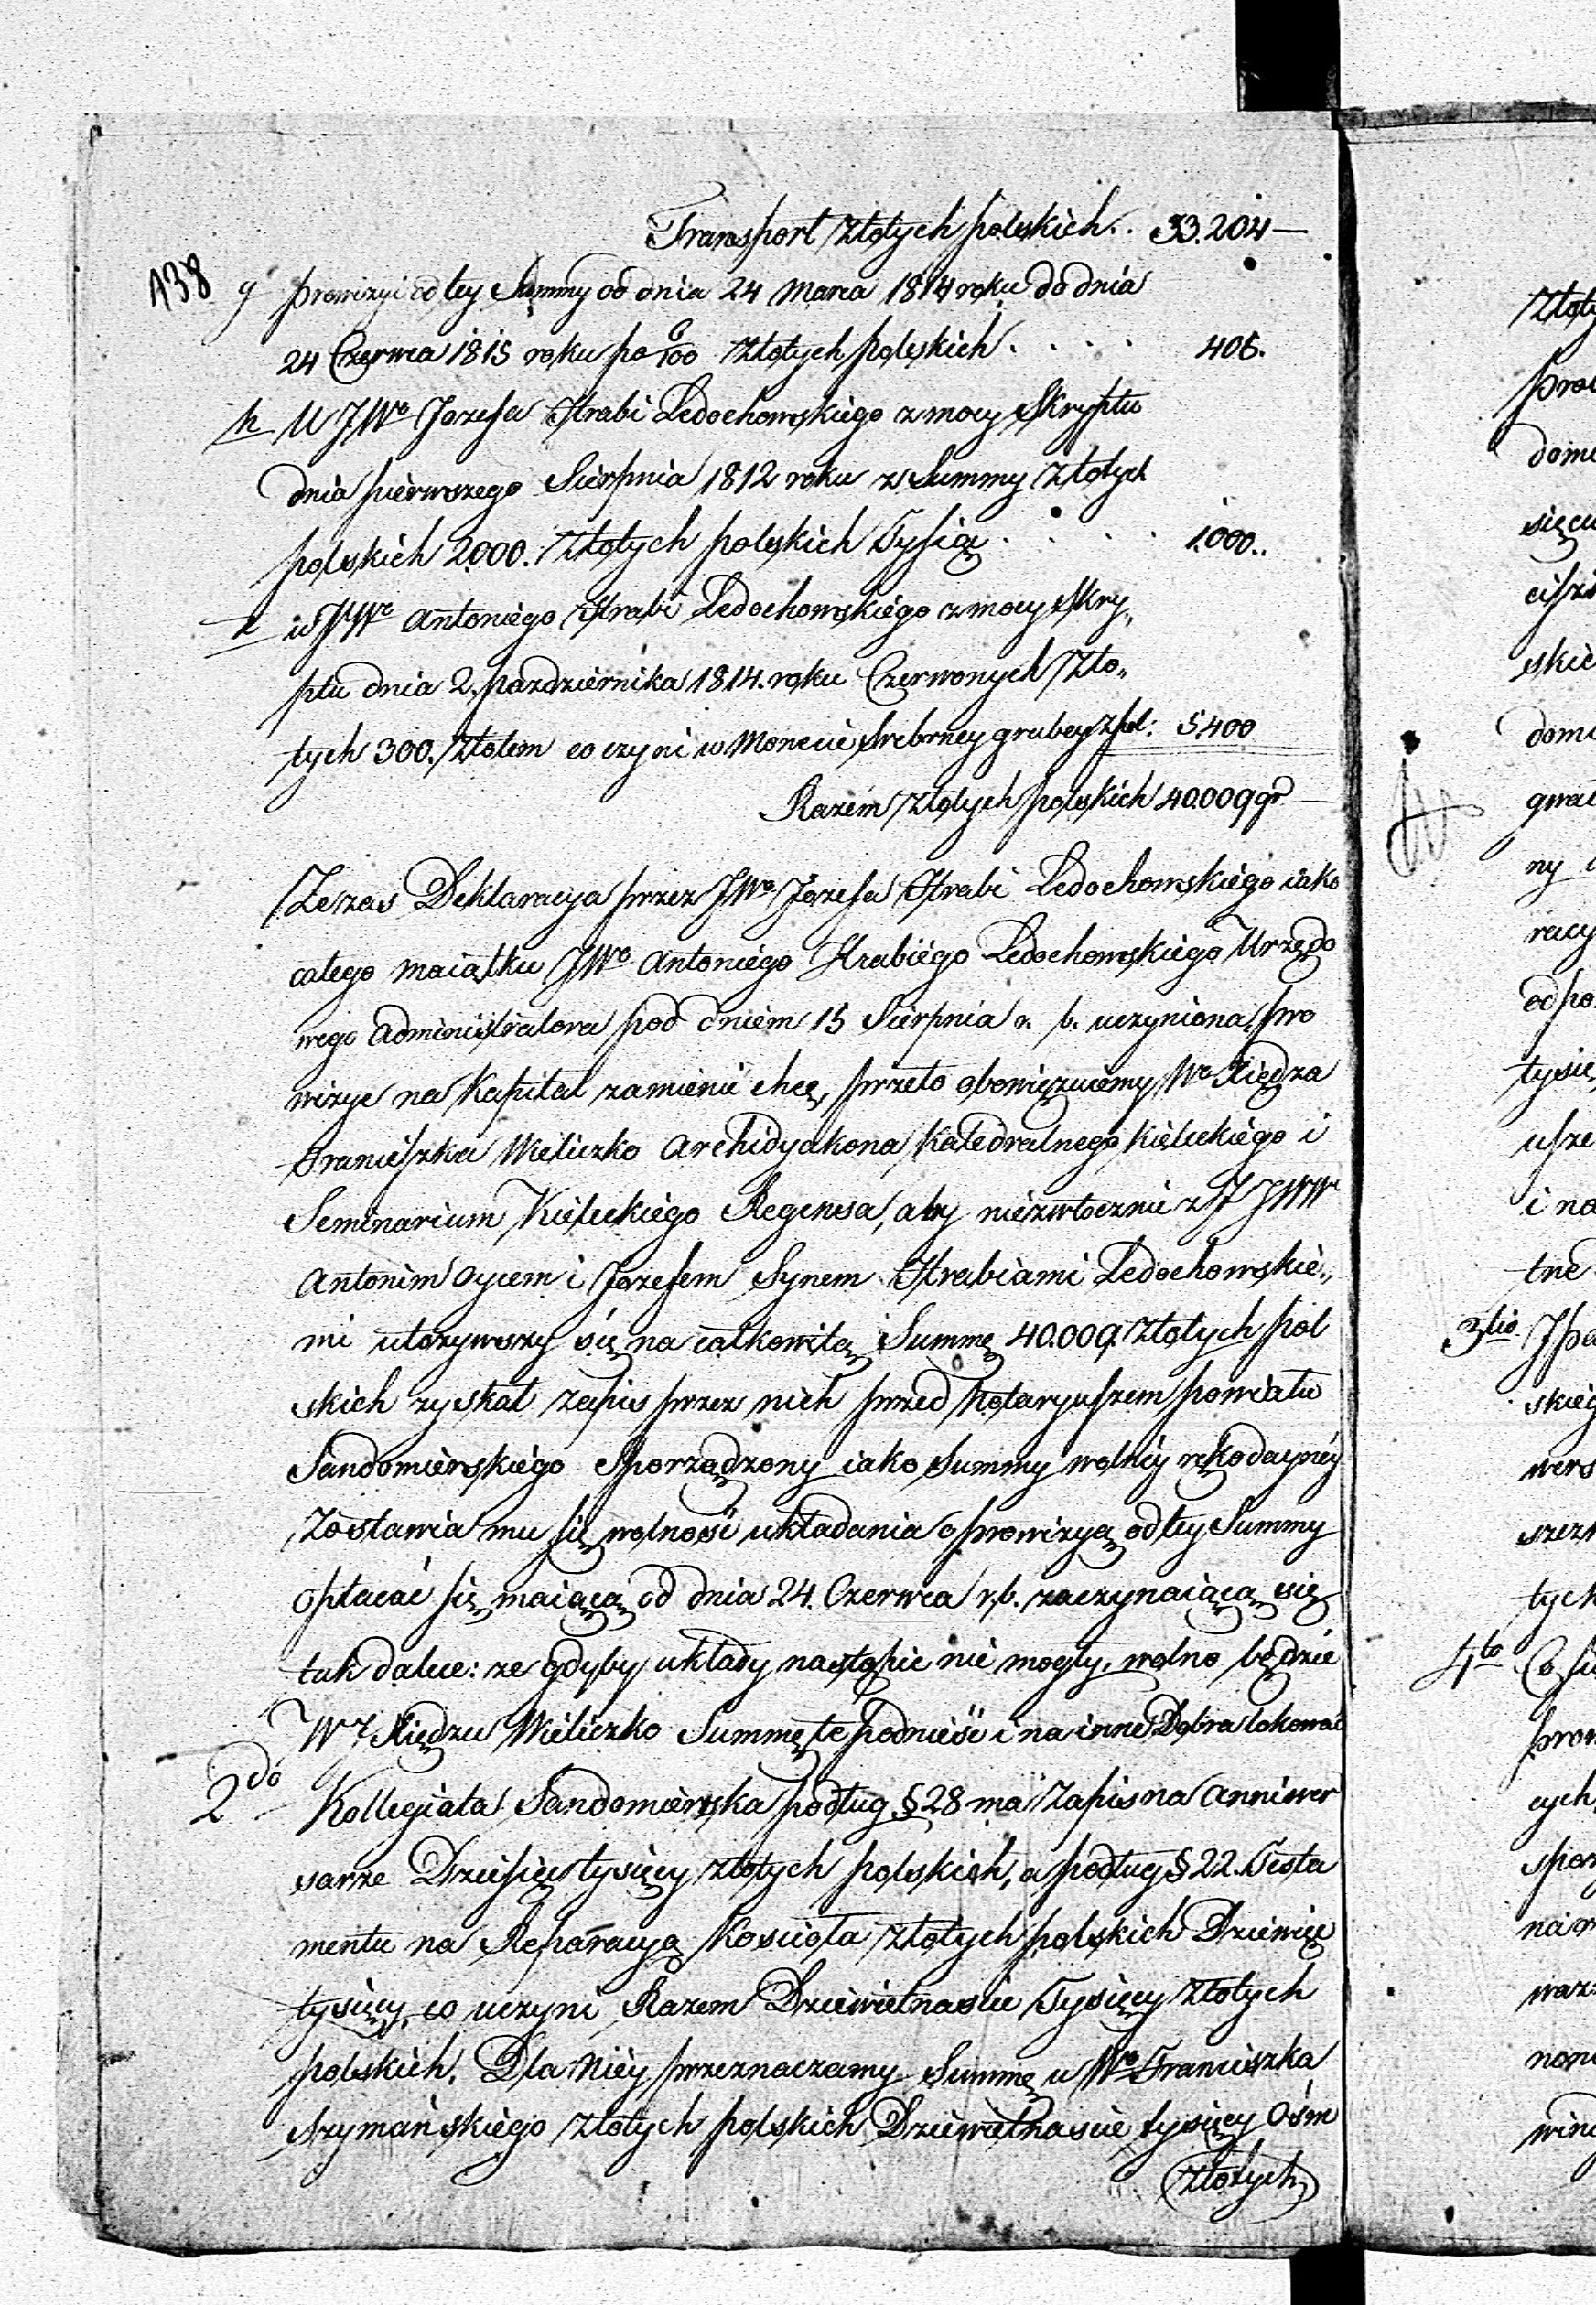 Transport Złotych polskich.. 33.204 —
138 g prowizyi od tey Summy od dnia 24 Marca 1814 roku do dnia
24 Czerwca 1815 roku po 6/100 Złotych polskich . . . . 405.
h U JWo Jozefa Hrabi Ledochowskiego z mocy Skryptu
dnia pierwszego Sierpnia 1812 roku z Summy Złotych
polskich 2000. Złotych polskich Tysiąc . . . . 1.000..
i u JWo Antoniego Hrabi Ledochowskiego z mocy Skry„
ptu dnia 2. pazdziernika 1814. roku Czerwonych Zło„
tych 300. złotem co czyni w Monecie Srebrney grubey zł pol: 5400
Razem Złotych polskich 40.009 gr —
Ze zas Deklaracya przez JWo Jozefa Hrabi Ledochowskiego iako
całego maiątku JWo Antoniego Hrabiego Ledochowskiego Urzędo
wego Administratora pod dniem 15 Sierpnia r. b. uczyniona pro
wizye na Kapitał zamienić chcę, przeto obowięzuiemy Wo Xiędza
Franciszka Wieliczko Archidyakona Katedralnego Kieleckiego i
Seminarium Kieleckiego Regensa, aby niezwłocznie z JJWW
Antonim Oycem i Jozefem Synem Hrabiami Ledochowskie„
mi ułożywszy się na całkowitą Summę 40.009 Złotych pol
skich zyskał zapis przez nich przed Notaryuszem powiatu
Sandomierskiego Sporządzony iako Summy wolney rękodayney
Zostawia mu się wolność układania o prowizyą od tey Summy
opłacać się maiącą od dnia 24. Czerwca r.b. zaczynaiącą się
tak dalece: ze gdyby układy nastąpić nie mogły, wolno będzie
WJ Xiędzu Wieliczko Summę te podnieść i na inne Dobra lokować
2do Kollegiata Sandomierska podług § 28 ma Zapis na anniwer
sarze Dziesięć tysięcy złotych polskich, a podług § 22. Testa
mentu na Reparacyą Kościoła złotych polskich Dziewięć
tysięcy, co uczyni Razem Dziewietnascie Tysięcy Złotych
polskich. Dla Niey przeznaczamy Summę u Wo Franciszka
Szymańskiego złotych polskich Dziewietnascie tysięcy Ośm
złotych
Złoty
prow
dome
sięcu
skie
domi
gwał
ny
racy
odpo
tysię
usze
i na
tne
3tio
skieg
wers
szczy
tych
4to
prow
cych
spor
wazn
wino